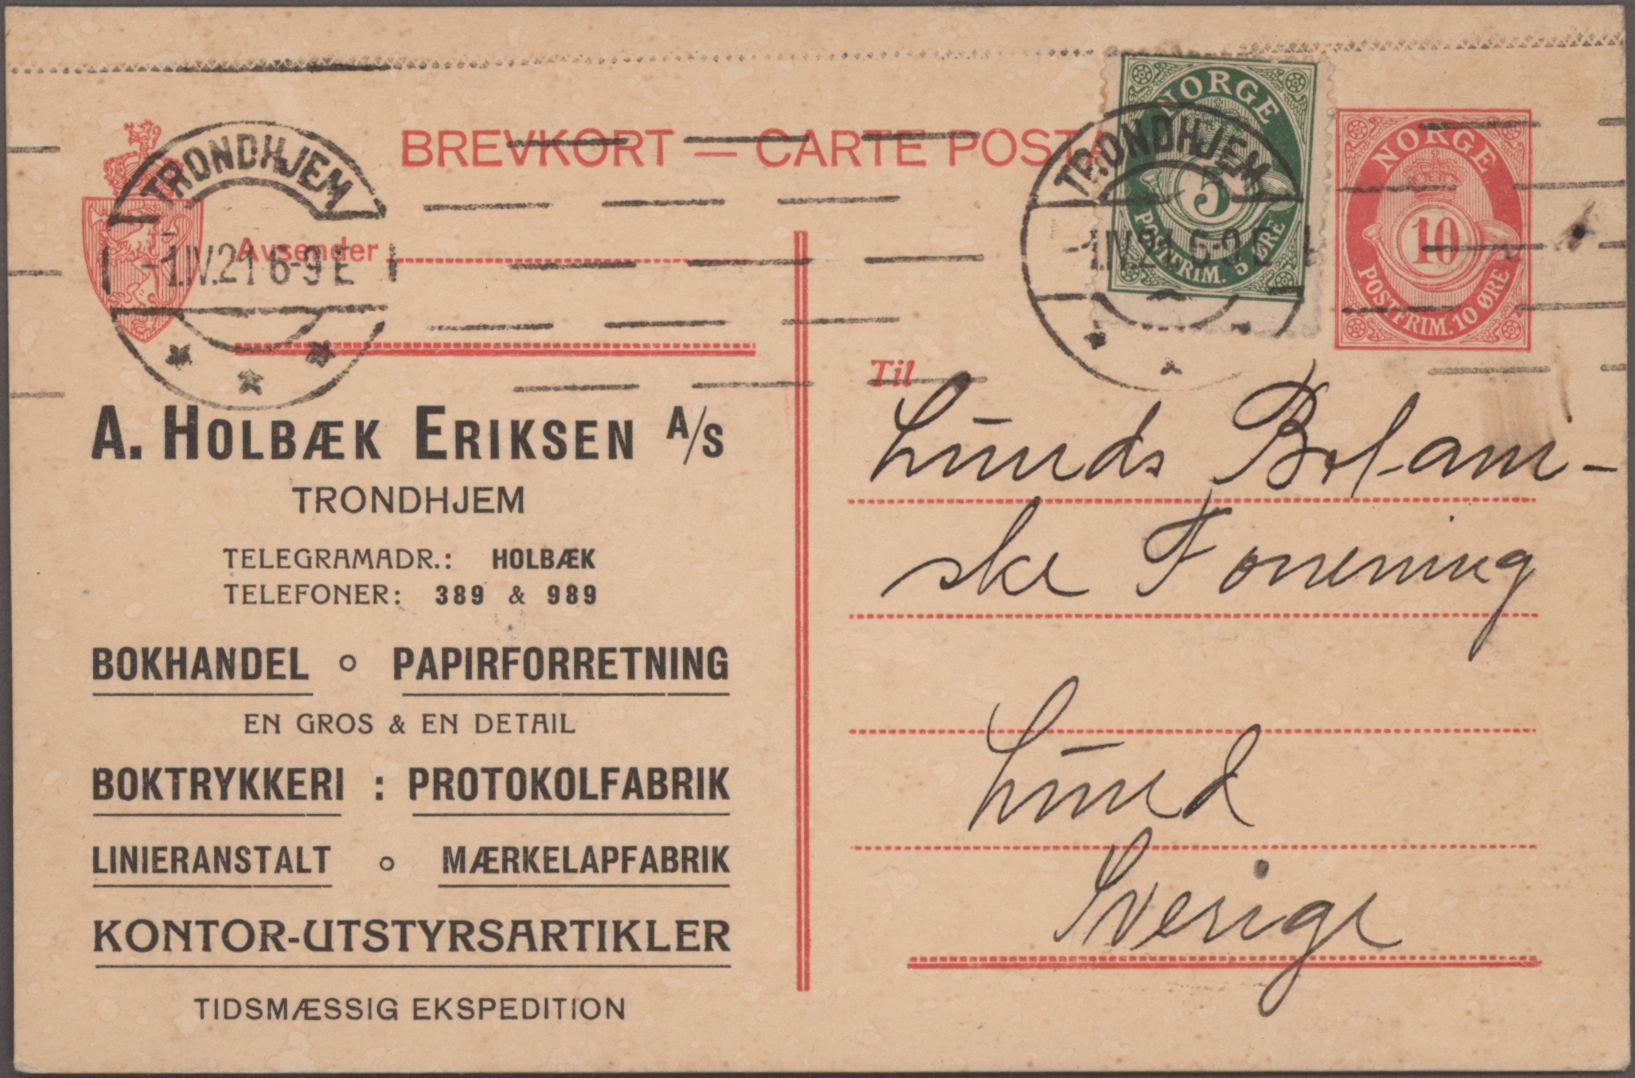 BREVKORT — CARTE POSTA
TRONDHJEM
-1.IV.21 6-9 E
Avsender
NORGE
5
POSTFRIM. 5 ØRE
TRONDHJEM
-1.IV.21 6-9 E
NORGE
10
POSTFRIM. 10 ØRE
A. HOLBÆK ERIKSEN A/S
TRONDHJEM
TELEGRAMADR.: HOLBÆK
TELEFONER: 389 & 989
BOKHANDEL o PAPIRFORRETNING
EN GROS & EN DETAIL
BOKTRYKKERI : PROTOKOLFABRIK
LINIERANSTALT o MÆRKELAPFABRIK
KONTOR-UTSTYRSARTIKLER
TIDSMÆSSIG EKSPEDITION
Til
Lunds Botani-
ske Forening
Lund
Sverige